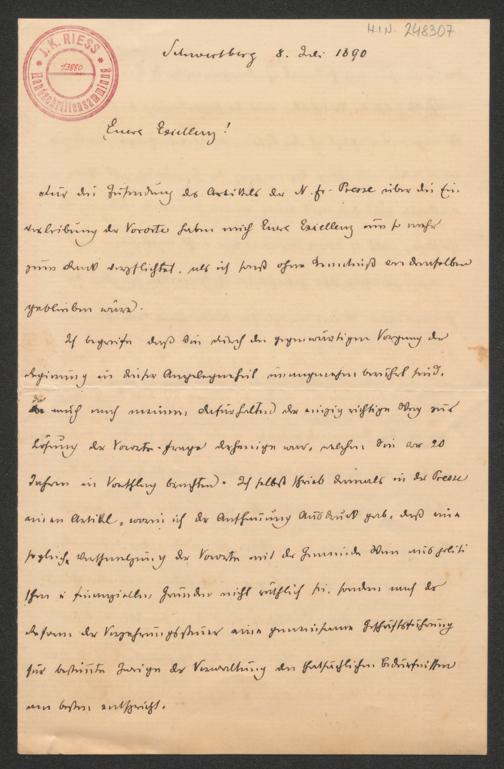 HIN. 248307
J. K. RIESS
13880
Handschriftensammlung
Schwertberg 8. Juli 1890
Euere Exzellenz!
Für die Zusendung des Artikels der N. fr. Presse über die Ein-
verleibung der Vororte haben mich Euere Exzellenz um so mehr
zum Dank verpflichtet, als ich sonst ohne Kenntniß von demselben
geblieben wäre.
Ich begreife daß Sie durch den gegenwärtigen Vorgang der
Regierung in dieser Angelegenheit unangenehm berührt sind,
da auch nach meinem Dafürhalten der einzig richtige Weg zur
Lösung der Vororte-Frage derjenige war, welchen Sie vor 20
Jahren in Vorschlag brachten. Ich selbst schrieb damals in der Presse
einen Artikel, worin ich der Anschauung Ausdruck gab, daß eine
sogleiche Verschmelzung der Vororte mit der Gemeinde Wien aus politi
schen u finanziellen Gründen nicht räthlich sei, sondern nach der
Reform der Verzehrungssteuer eine gemeinsame Geschäftsführung
für bestimmte Zweige der Verwaltung den thatsächlichen Bedürfnissen
am besten entspricht.